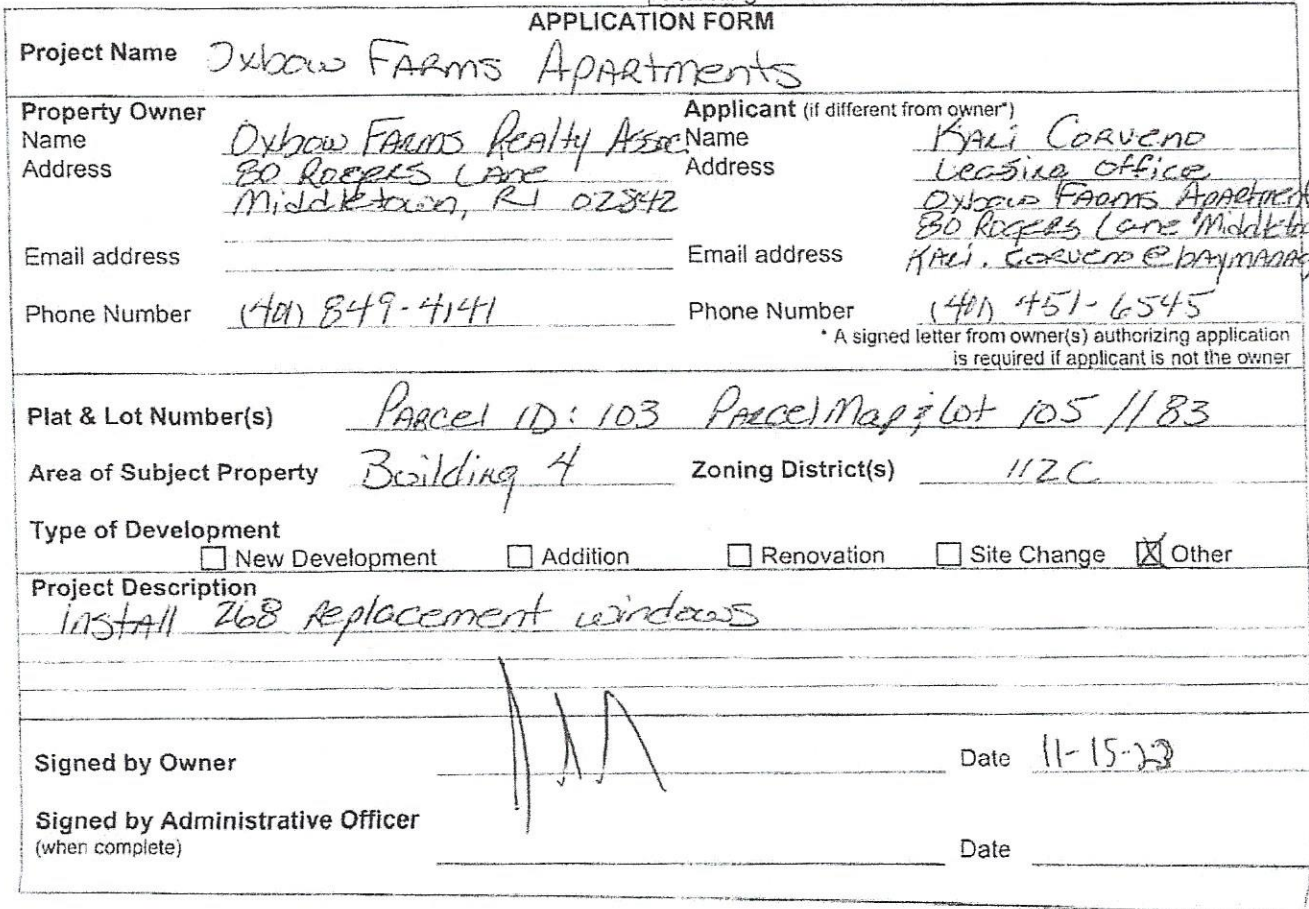 APPLICATION FORM
Project Name Oxbow Farms Apartments
Property Owner
Name Oxbow Farms Realty Assoc
Address 80 Rogers Lane
Middletown, RI 02842
Email address
Phone Number (401) 849-4141
Applicant (if different from owner*)
Name Kari Corveno
Address Leasing Office
Oxbow Farms Apartment
80 Rogers Lane Middleto
Email address Kari.Corveno@baymanag
Phone Number (401) 451-6545
* A signed letter from owner(s) authorizing application
is required if applicant is not the owner
Plat & Lot Number(s) Parcel ID: 103 Parcel Map & Lot 105 // 83
Area of Subject Property Building 4 Zoning District(s) 112C
Type of Development
New Development Addition Renovation Site Change X Other
Project Description
install 268 Replacement windows
Signed by Owner Date 11-15-23
Signed by Administrative Officer
(when complete) Date